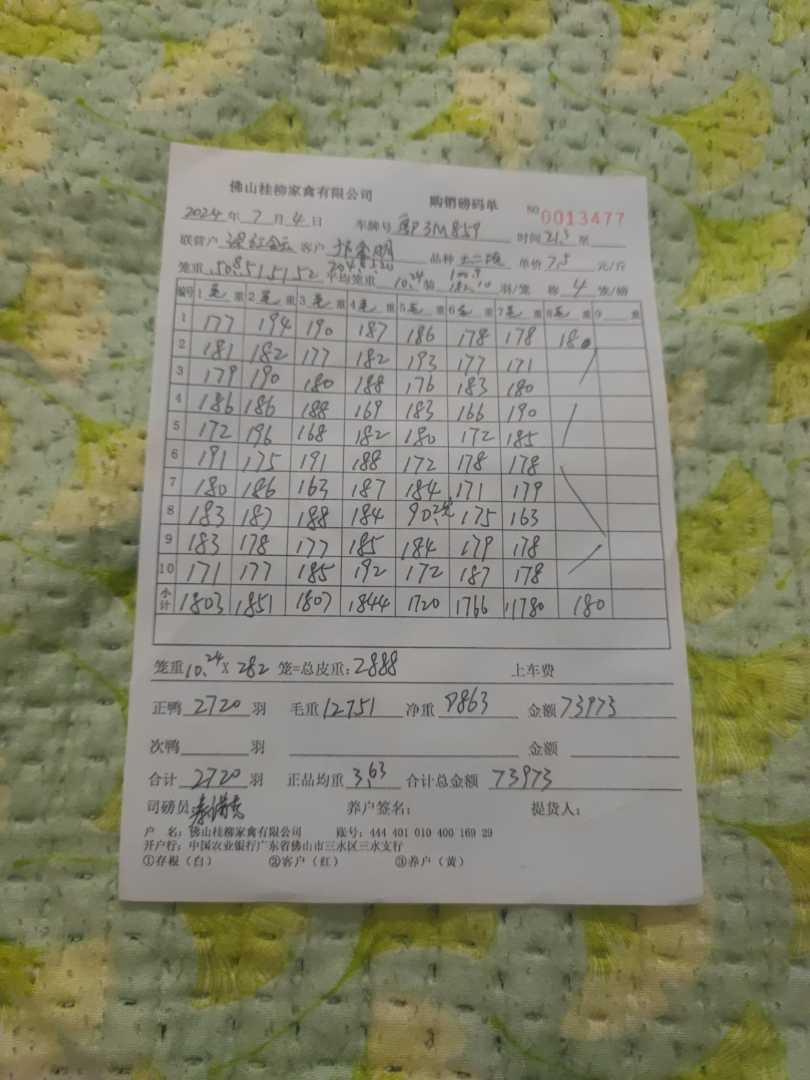 佛山桂柳家禽有限公司 购销磅码单 NO 0013477
2024年7月4日 车牌号 3M859 时间 21.3
联营户 客户 明 品种 单价 7.5 元/斤
笼重 50.8 51 51 52 平均笼重 10.24 羽/笼 称 4 笼/磅
编号 1 毛 重 2 毛 重 3 毛 重 4 毛 重 5 毛 重 6 毛 重 7 毛 重 8 毛 重 9 重
1 177 194 190 187 186 178 178 180
2 181 182 177 182 193 177 171
3 179 190 180 188 176 183 180
4 186 186 188 169 183 166 190
5 172 196 168 182 180 172 185
6 191 175 191 188 172 178 178
7 180 186 163 187 184 171 179
8 183 187 188 184 90 2笼 175 163
9 183 178 177 185 184 179 178
10 171 177 185 192 172 187 178
小计 1803 1851 1807 1844 1720 1766 1780 180
笼重 10.24 X 282 笼=总皮重: 2888 上车费
正鸭 2720 羽 毛重 12751 净重 9863 金额 73973
次鸭 羽 金额
合计 2720 羽 正品均重 3.63 合计总金额 73973
司磅员 养户签名: 提货人:
户 名: 佛山桂柳家禽有限公司 账号: 444 401 010 400 169 29
开户行: 中国农业银行广东省佛山市三水区三水支行
①存根（白） ②客户（红） ③养户（黄）